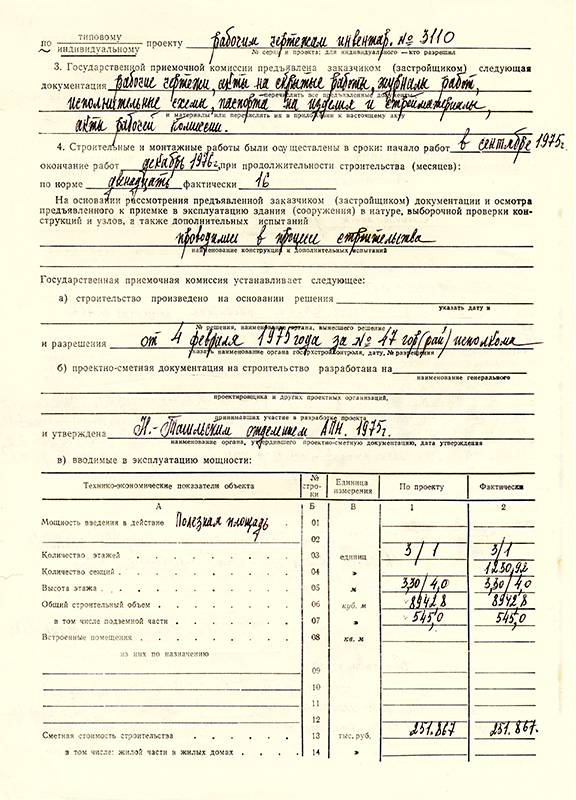 по типовому индивидуальному проекту рабочим чертежам инвентар. № 3110
№ серии и проекта: для индивидуального — кто разрешил
3. Государственной приемочной комиссии предъявлена заказчиком (застройщиком) следующая
документация рабочие чертежи, акты на скрытые работы, журналы работ,
перечислить все предъявленные документы
исполнительные схемы, паспорта на изделия и стройматериалы,
и материалы или перечислить их в приложении к настоящему акту
акты рабочей комиссии.
4. Строительные и монтажные работы были осуществлены в сроки: начало работ в сентябре 1975г.
окончание работ декабрь 1976г, при продолжительности строительства (месяцев):
по норме двенадцать фактически 16
На основании рассмотрения предъявленной заказчиком (застройщиком) документации и осмотра
предъявленного к приемке в эксплуатацию здания (сооружения) в натуре, выборочной проверки кон-
струкций и узлов, а также дополнительных испытаний
проводимих в процесе строительства
наименование конструкций и дополнительных испытаний
Государственная приемочная комиссия устанавливает следующее:
а) строительство произведено на основании решения
указать дату и
№ решения, наименование органа, вынесшего решение
и разрешения от 4 февраля 1975 года за № 47 гор(рай) исполкома
указать наименование органа госгрхстроконтроля, дату, № разрешения
б) проектно-сметная документация на строительство разработана на
наименование генерального
проектировщика и других проектных организаций,
принимавших участие в разработке проекта
и утверждена Н.-Тагильским отделением АПН. 1975г.
наименование органа, утвердившего проектно-сметную документацию, дата утверждения
в) вводимые в эксплуатацию мощности:
Технико-экономические показатели объекта № стро-ки Единица измерения По проекту Фактически
А Б В 1 2
Мощность введения в действие Полезная площадь. 01
02
Количество этажей 03 единиц 3/1 3/1
Количество секций 04 » 1250,92
Высота этажа 05 м 3,30/4,0 3,30/4,0
Общий строительный объем 06 куб. м 8942,8 8942,8
в том числе подземной части 07 » 545,0 545,0
Встроенные помещения 08 кв. м
из них по назначению
09
10
11
12
Сметная стоимость строительства 13 тыс. руб. 251.867 251.867.
в том числе: жилой части в жилых домах 14 »